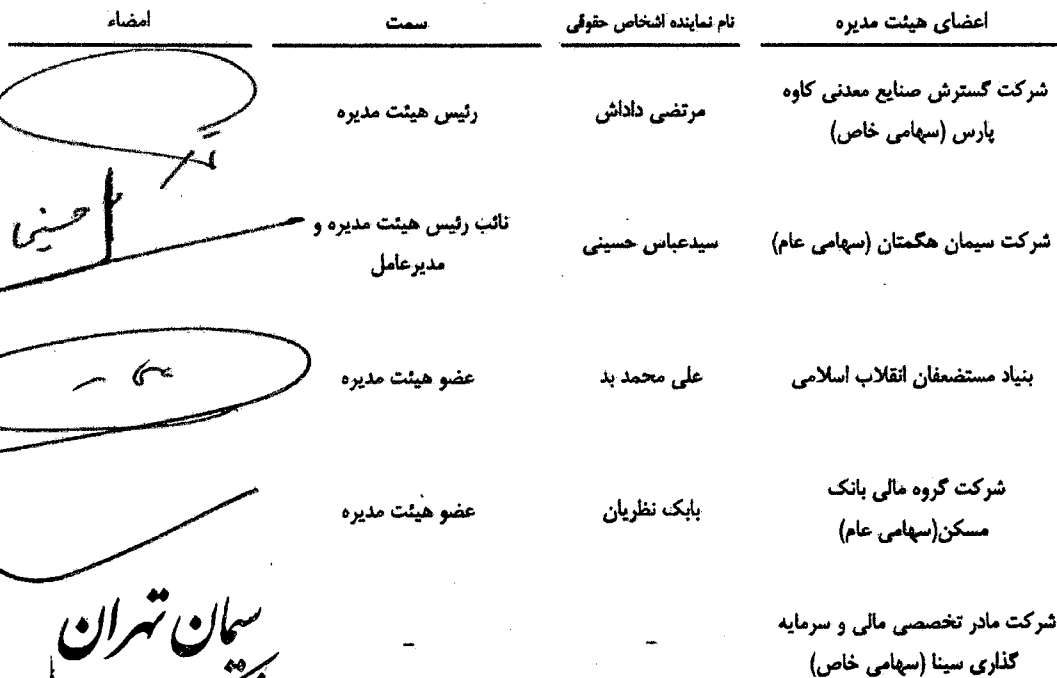 اعضای هیئت مدیره نام نماینده اشخاص حقوقی سمت امضاء
شرکت گسترش صنایع معدنی کاوه
پارس (سهامی خاص)
مرتضی داداش
رئیس هیئت مدیره
شرکت سیمان هگمتان (سهامی عام)
سیدعباس حسینی
نائب رئیس هیئت مدیره و
مدیرعامل
حسینی
بنیاد مستضعفان انقلاب اسلامی
علی محمد بد
عضو هیئت مدیره
شرکت گروه مالی بانک
مسکن(سهامی عام)
بابک نظریان
عضو هیئت مدیره
شرکت مادر تخصصی مالی و سرمایه
گذاری سینا (سهامی خاص)
-
-
سیمان تهران